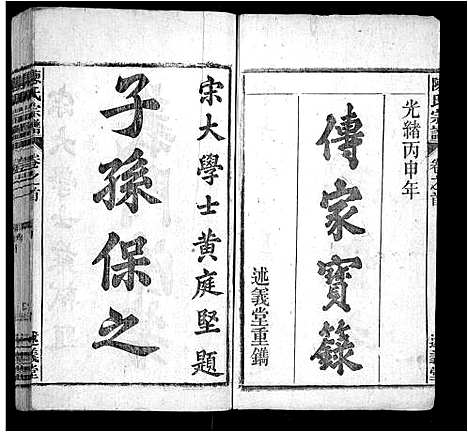 陳氏宗譜
卷之首
述義堂
光緒丙申年
傳家寶籙
述義堂重鐫
宋大學士黃庭堅題
子孫保之
陳氏宗譜
卷之首
述義堂